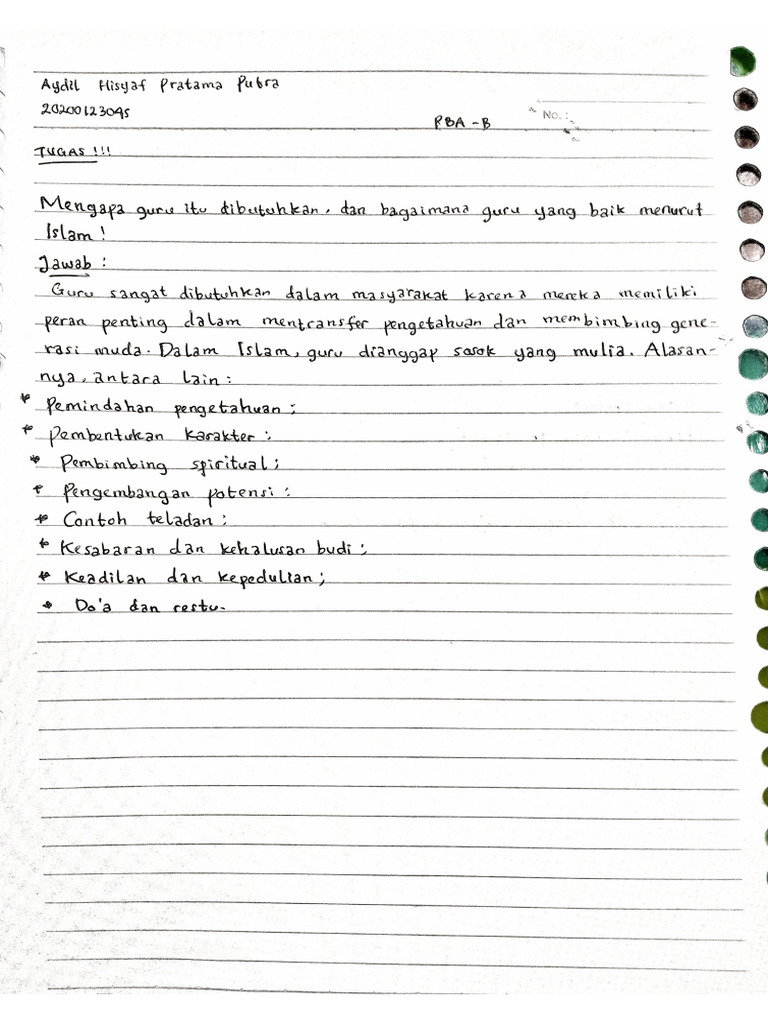 Aydil Hisyaf Pratama Putra
20200123045
PBA - B
No. :
TUGAS !!!
Mengapa guru itu dibutuhkan, dan bagaimana guru yang baik menurut
Islam !
Jawab :
Guru sangat dibutuhkan dalam masyarakat karena mereka memiliki
peran penting dalam mentransfer pengetahuan dan membimbing gene-
rasi muda. Dalam Islam, guru dianggap sosok yang mulia. Alasan-
nya, antara lain :
* Pemindahan pengetahuan ;
* Pembentukan karakter ;
* Pembimbing spiritual ;
* Pengembangan potensi :
* Contoh teladan ;
* Kesabaran dan kehalusan budi ;
* Keadilan dan kepedulian ;
* Do'a dan restu.